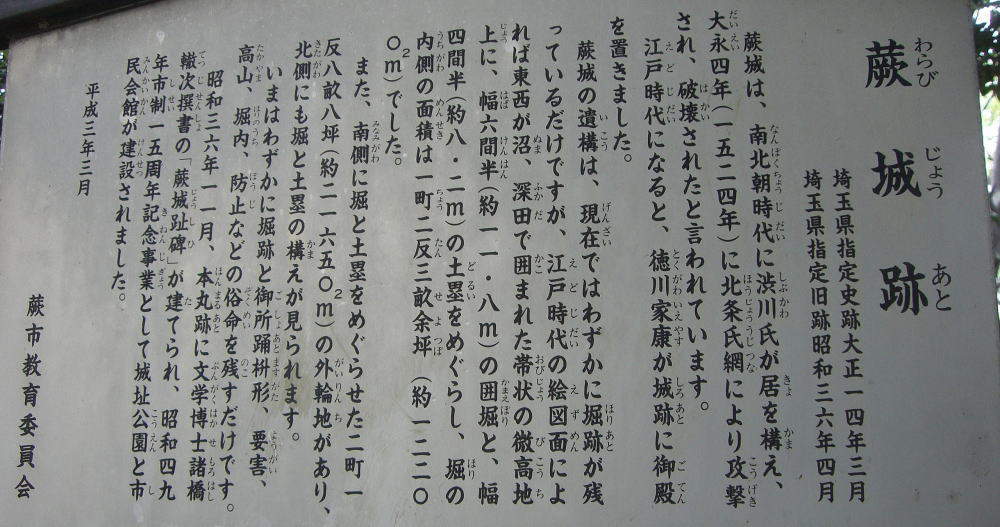 蕨城跡
埼玉県指定史跡大正一四年三月
埼玉県指定旧跡昭和三六年四月
蕨城は、南北朝時代に渋川氏が居を構え、
大永四年(一五二四年)に北条氏網により攻撃
され、破壊されたと言われています。
江戸時代になると、徳川家康が城跡に御殿
を置きました。
蕨城の遺構は、現在ではわずかに堀跡が残
っているだけですが、江戸時代の絵図面によ
れば東西が沼、深田で囲まれた帯状の微高地
上に、幅六間半(約一一・八m)の囲堀と、幅
四間半(約八・二m)の土塁をめぐらし、堀の
内側の面積は一町二反三畝余坪(約一二二〇
〇m²)でした。
また、南側に堀と土塁をめぐらせた二町一
反八畝八坪(約二一六五〇m²)の外輪地があり、
北側にも堀と土塁の構えが見られます。
いまはわずかに堀跡と御所踊枡形、要害、
高山、堀内、防止などの俗命を残すだけです。
昭和三六年一一月、本丸跡に文学博士諸橋
轍次撰書の「蕨城址碑」が建てられ、昭和四九
年市制一五周年記念事業として城址公園と市
民会館が建設されました。
平成三年三月
蕨市教育委員会